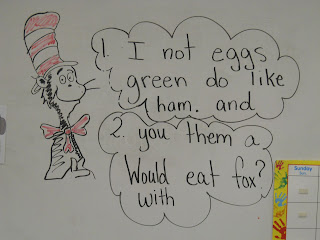 1. I not eggs
green do like
ham. and
2. you them a
Would eat fox?
with
Sunday